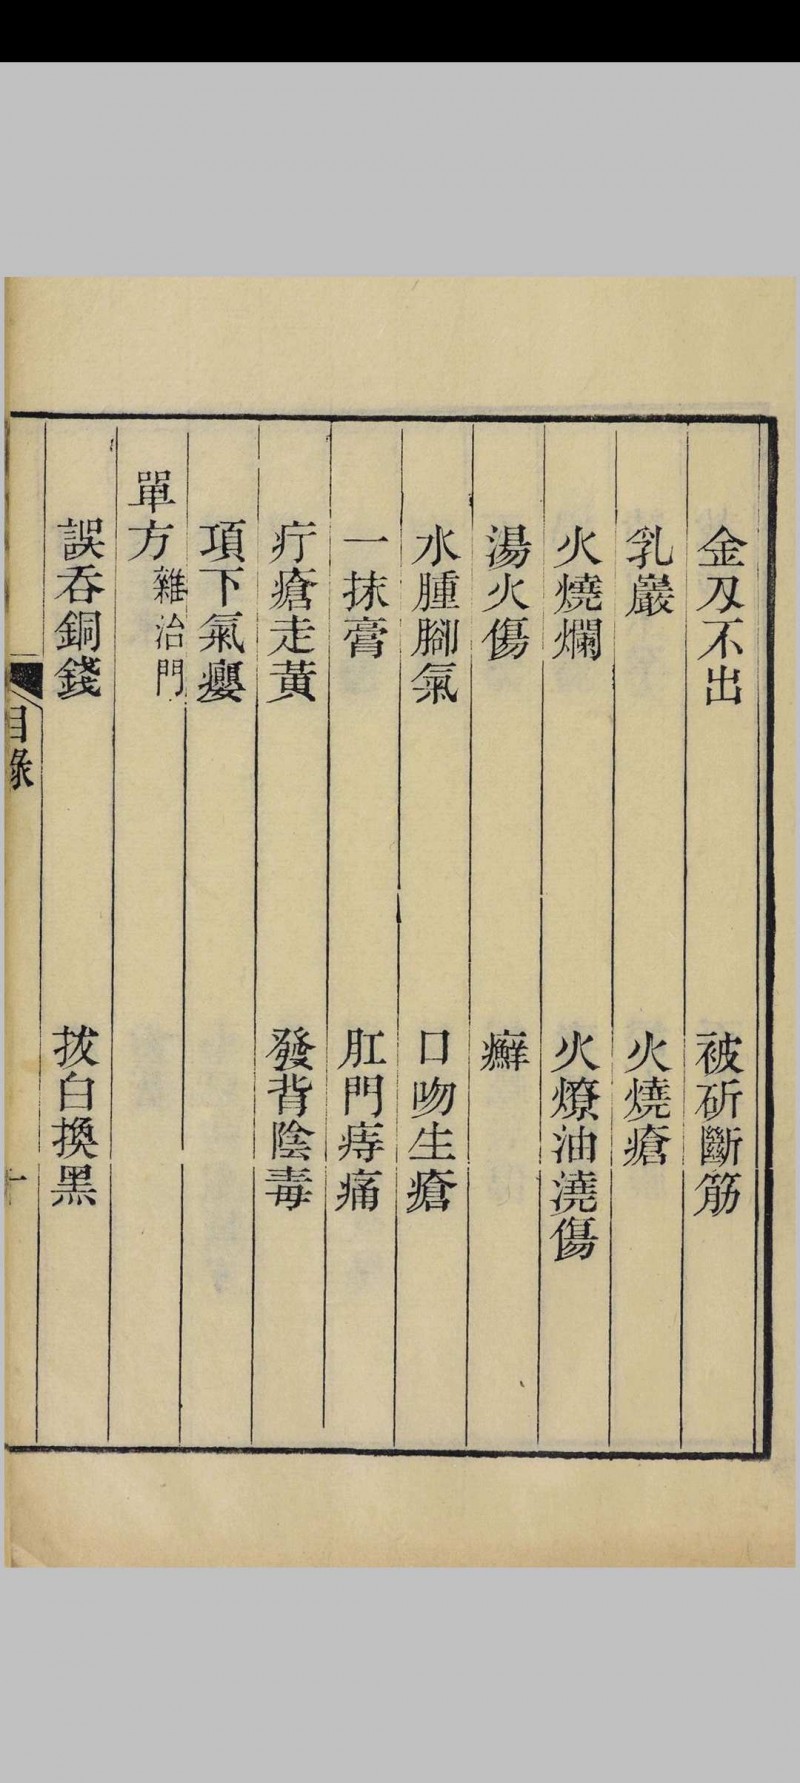 金刄不出　被斫斷筋
乳巖　火燒瘡
火燒爛　火燎油澆傷
湯火傷　癬
水腫腳氣　口吻生瘡
一抹膏　肛門痔痛
疔瘡走黃　發背陰毒
項下氣癭
單方雜治門
誤吞銅錢　拔白換黑
目錄